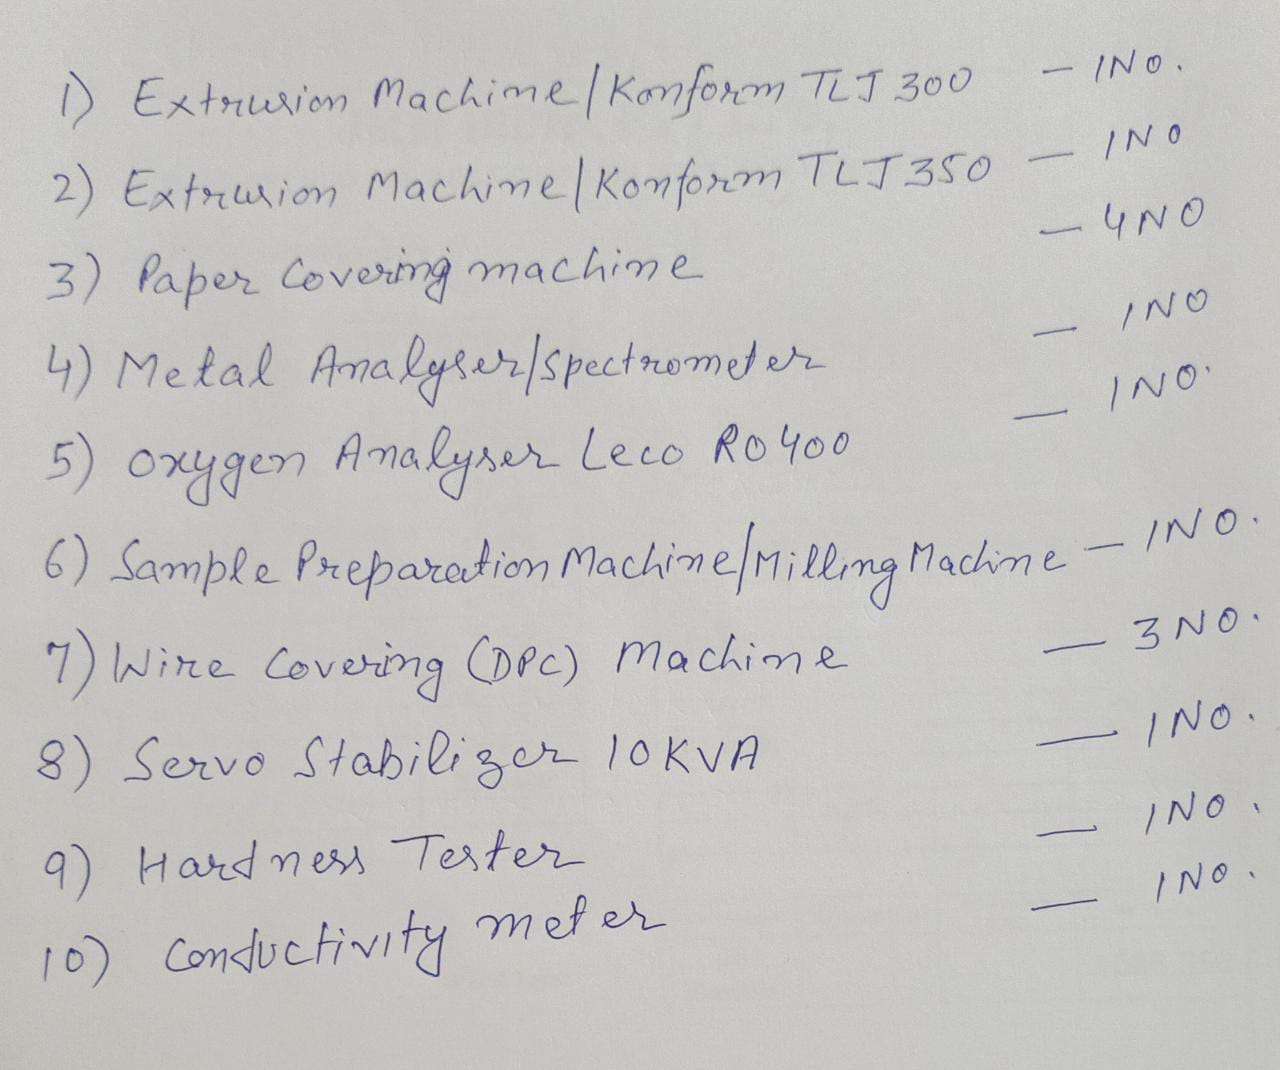 1) Extrusion Machine/Konform TLJ 300 - 1NO.
2) Extrusion Machine/Konform TLJ 350 - 1NO
3) Paper Covering machine - 4NO
4) Metal Analyser/Spectrometer - 1NO
5) Oxygen Analyser Leco RO400 - 1NO.
6) Sample Preparation Machine/Milling Machine - 1NO.
7) Wire Covering (DPC) Machine - 3NO.
8) Servo Stabilizer 10KVA - 1NO.
9) Hardness Tester - 1NO.
10) Conductivity meter - 1NO.